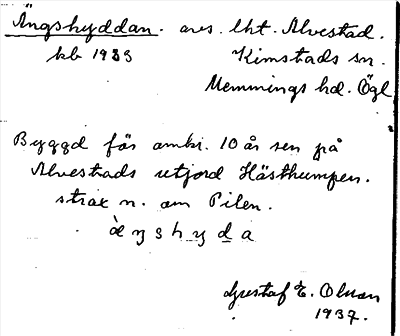 Ängshyddan. avs. lht. Alvestad.
kb 1933 Kimstads sn.
Memmings hd. Ögl
Byggd för omkr. 10 år sen på
Alvestads utjord Hästhumpen.
strax n. om Pilen.
Gustaf E. Olsson
1937.